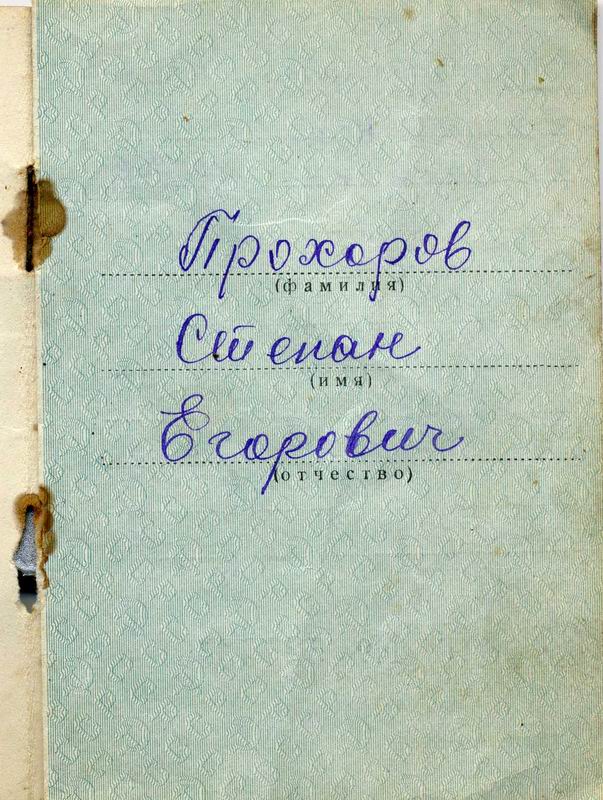 Прохоров
(фамилия)
Степан
(имя)
Егорович
(отчество)